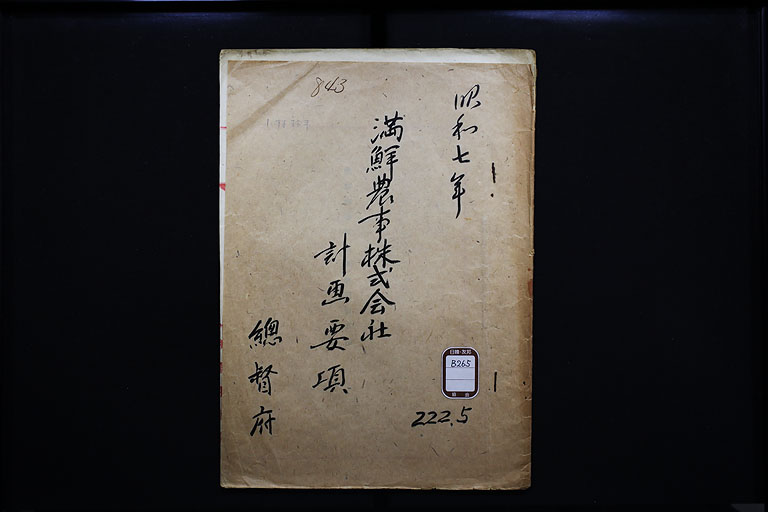 昭和七年
満鮮農事株式会社
計画要項
總督府
843
B265
222.5